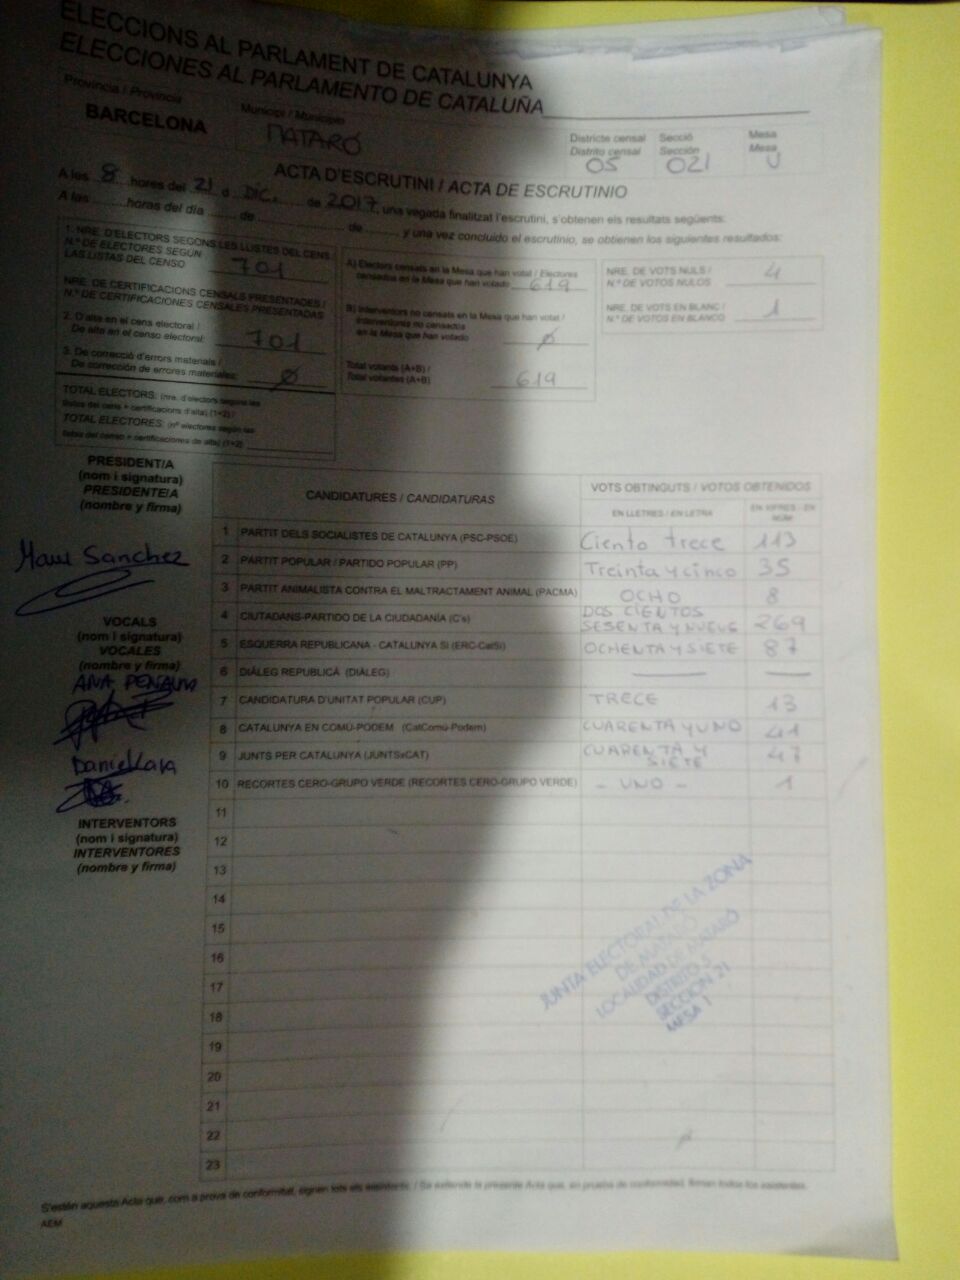 ELECCIONS AL PARLAMENT DE CATALUNYA
ELECCIONES AL PARLAMENTO DE CATALUÑA
Província / Provincia
BARCELONA
Municipi / Municipio
MATARÓ
Districte censal
Distrito censal
05
Secció
Sección
021
Mesa
Mesa
U
ACTA D'ESCRUTINI / ACTA DE ESCRUTINIO
A les 8 hores del 21 d DIC. de 2017, una vegada finalitzat l'escrutini, s'obtenen els resultats següents:
A las ........ horas del día ........ de ........ de ........ y una vez concluido el escrutinio, se obtienen los siguientes resultados:
1. NRE. D'ELECTORS SEGONS LES LLISTES DEL CENS
N.º DE ELECTORES SEGÚN
LAS LISTAS DEL CENSO 701
NRE. DE CERTIFICACIONS CENSALS PRESENTADES /
N.º DE CERTIFICACIONES CENSALES PRESENTADAS
2. D'alta en el cens electoral /
De alta en el censo electoral: 701
3. De correcció d'errors materials /
De corrección de errores materiales: Ø
TOTAL ELECTORS: (nre. d'electors segons les
llistes del cens + certificacions d'alta) (1+2) /
TOTAL ELECTORES: (nº electores según las
listas del censo + certificaciones de alta) (1+2)
A) Electors censats en la Mesa que han votat / Electores
censados en la Mesa que han votado 619
B) Interventors no censats en la Mesa que han votat /
Interventores no censados
en la Mesa que han votado Ø
Total votants (A+B) /
Total votantes (A+B) 619
NRE. DE VOTS NULS /
N.º DE VOTOS NULOS 4
NRE. DE VOTS EN BLANC /
N.º DE VOTOS EN BLANCO 1
PRESIDENT/A
(nom i signatura)
PRESIDENTE/A
(nombre y firma)
Sanchez
VOCALS
(nom i signatura)
VOCALES
(nombre y firma)
ANA
Daniel Lara
INTERVENTORS
(nom i signatura)
INTERVENTORES
(nombre y firma)
CANDIDATURES / CANDIDATURAS
VOTS OBTINGUTS / VOTOS OBTENIDOS
EN LLETRES / EN LETRA
EN XIFRES - EN NÚM
1 PARTIT DELS SOCIALISTES DE CATALUNYA (PSC-PSOE) Ciento trece 113
2 PARTIT POPULAR / PARTIDO POPULAR (PP) Treinta y cinco 35
3 PARTIT ANIMALISTA CONTRA EL MALTRACTAMENT ANIMAL (PACMA) OCHO 8
4 CIUTADANS-PARTIDO DE LA CIUDADANÍA (C's) DOS CIENTOS SESENTA Y NUEVE 269
5 ESQUERRA REPUBLICANA - CATALUNYA SÍ (ERC-CatSí) OCHENTA Y SIETE 87
6 DIÀLEG REPUBLICÀ (DIÀLEG) — —
7 CANDIDATURA D'UNITAT POPULAR (CUP) TRECE 13
8 CATALUNYA EN COMÚ-PODEM (CatComú-Podem) CUARENTA Y UNO 41
9 JUNTS PER CATALUNYA (JUNTSxCAT) CUARENTA Y SIETE 47
10 RECORTES CERO-GRUPO VERDE (RECORTES CERO-GRUPO VERDE) - UNO - 1
11
12
13
14
15
16
17
18
19
20
21
22
23
JUNTA ELECTORAL DE LA ZONA
DE MATARÓ
LOCALIDAD DE MATARÓ
DISTRITO 5
SECCION 21
MESA 1
S'estén aquesta Acta que, com a prova de conformitat, signen tots els assistents. / Se extiende la presente Acta que, en prueba de conformidad, firman todos los asistentes.
AEM